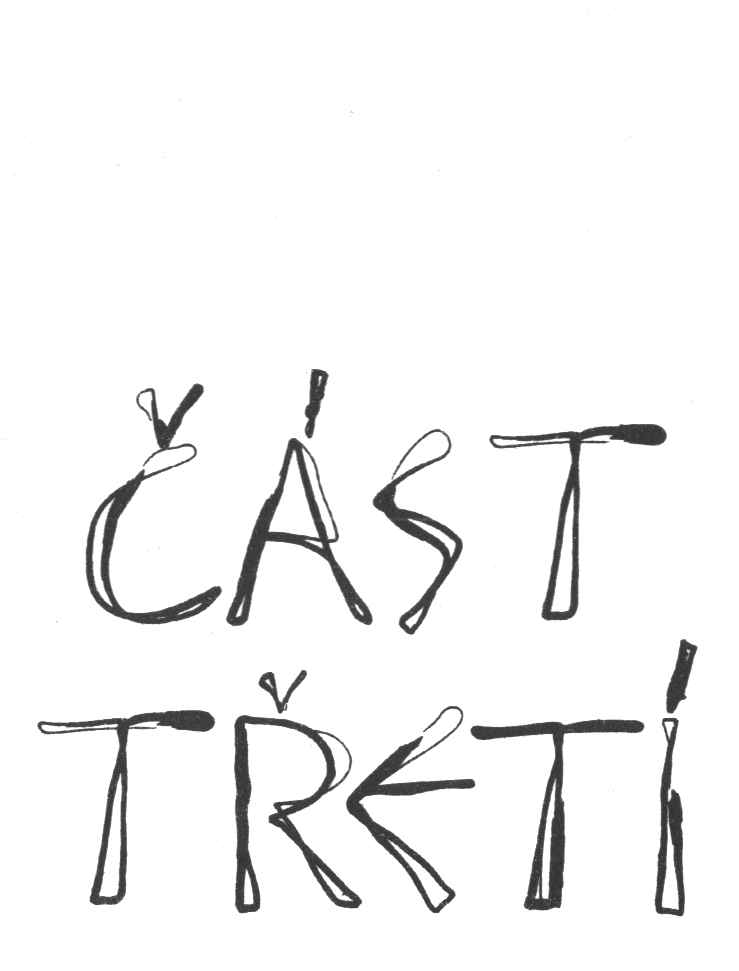 ČÁST
TŘETÍ